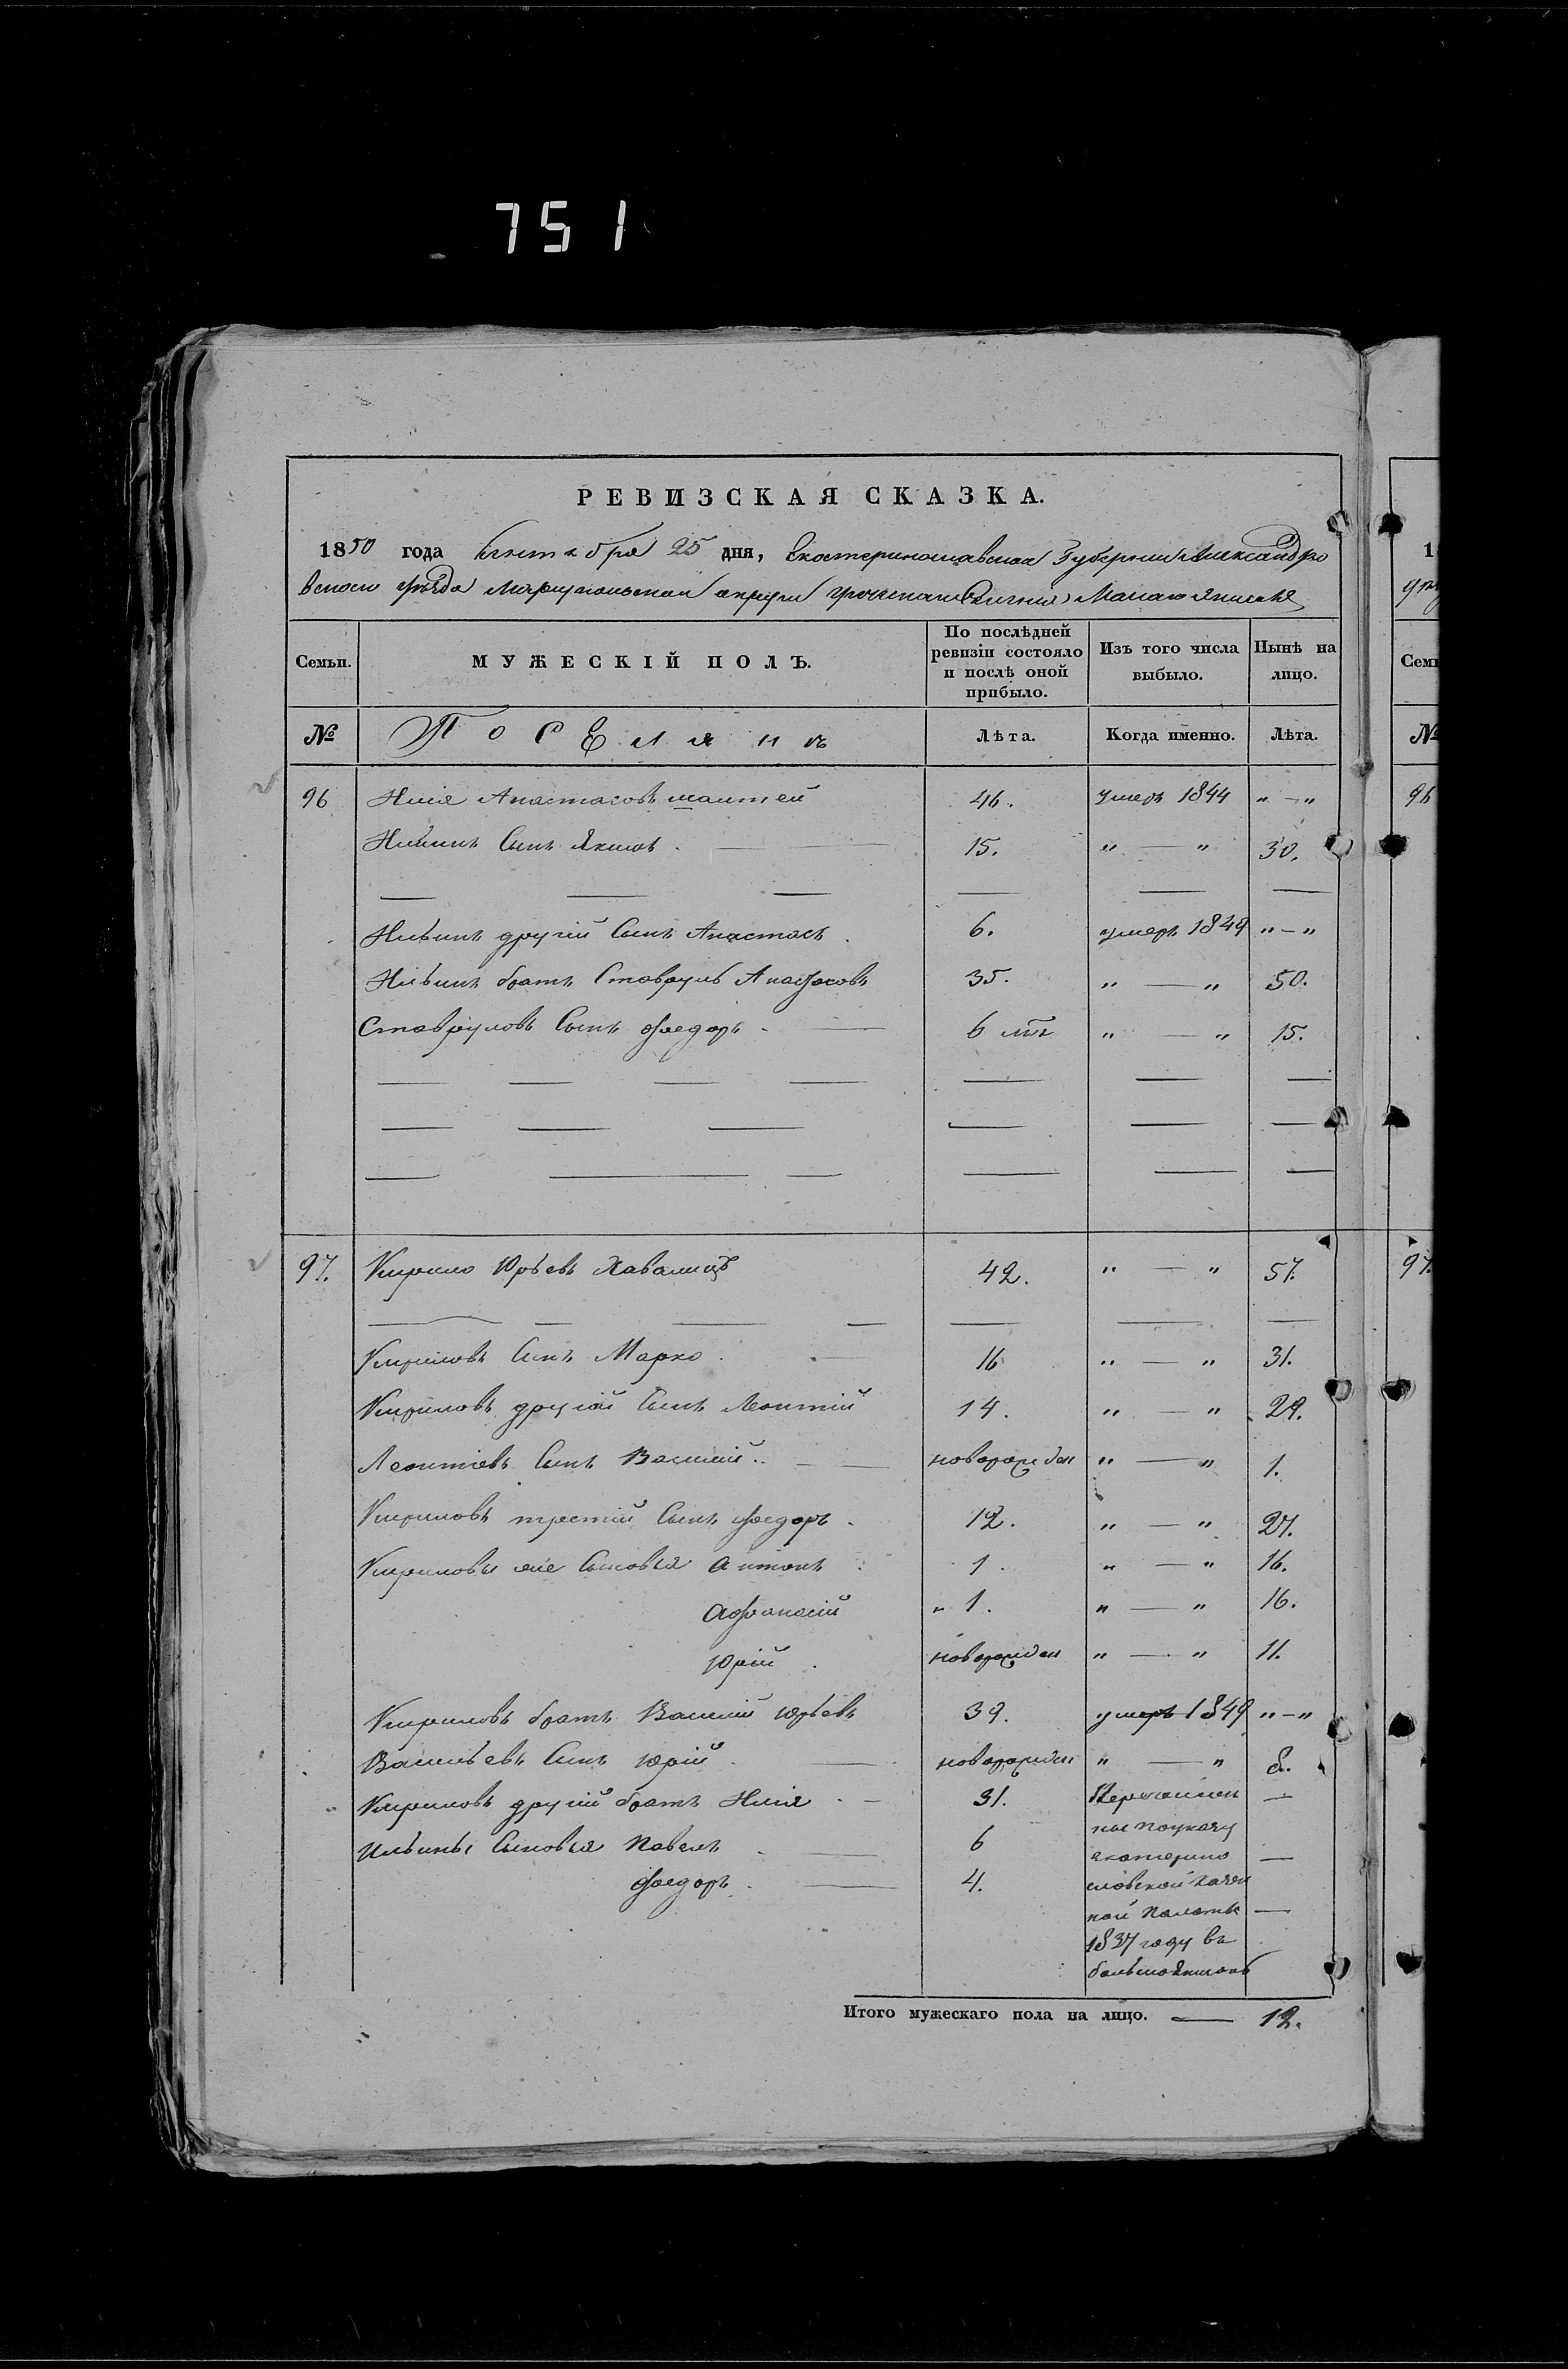 751
РЕВИЗСКАЯ СКАЗКА.
1850 года сентября 25 дня, Екатеринославской Губерніи Александро
вскаго уѣзда Маріупольскаго округи греческаго Селенія Малаго Янисаля
Семьи. МУЖЕСКІЙ ПОЛЪ. По послѣдней ревизіи состояло и послѣ оной прибыло. Изъ того числа выбыло. Нынѣ на лицо.
№ Поселянъ Лѣта. Когда именно. Лѣта.
96 Илія Анастасовъ 46. умеръ 1844 „ — „
Ильинъ Сынъ Якимъ. 15. „ — „ 30.
Ильинъ другій Сынъ Анастасъ. 6. умеръ 1849 „ — „
Ильинъ братъ Ставрулъ Анастасовъ 35. „ — „ 50.
Ставруловъ Сынъ Ѳедоръ. 6 „ — „ 15.
97. Кирило Юрьевъ 42. „ — „ 57.
Кириловъ Сынъ Марко. 16 „ — „ 31.
Кириловъ другій Сынъ Леонтій 14. „ — „ 29.
Леонтіевъ Сынъ Василій. новорожден „ — „ 1.
Кириловъ третій Сынъ Ѳедоръ. 12. „ — „ 27.
Кириловы же Сыновья Антонъ 1. „ — „ 16.
Афанасій „ 1. „ — „ 16.
Юрій. новорожден „ — „ 11.
Кириловъ братъ Василій Юрьевъ 39. умеръ 1849 „ — „
Васильевъ Сынъ Юрій. новорожден „ — „ 8.
Кириловъ другій братъ Илія. 31. Перечислен —
Ильины Сыновья Павелъ. 6 ны по указу
екатерино —
Ѳедоръ. 4. славской казен
ной Палаты —
1837 году въ
большой Янисоль
Итого мужескаго пола на лицо. — 12.
1
Семь
№
96
97.